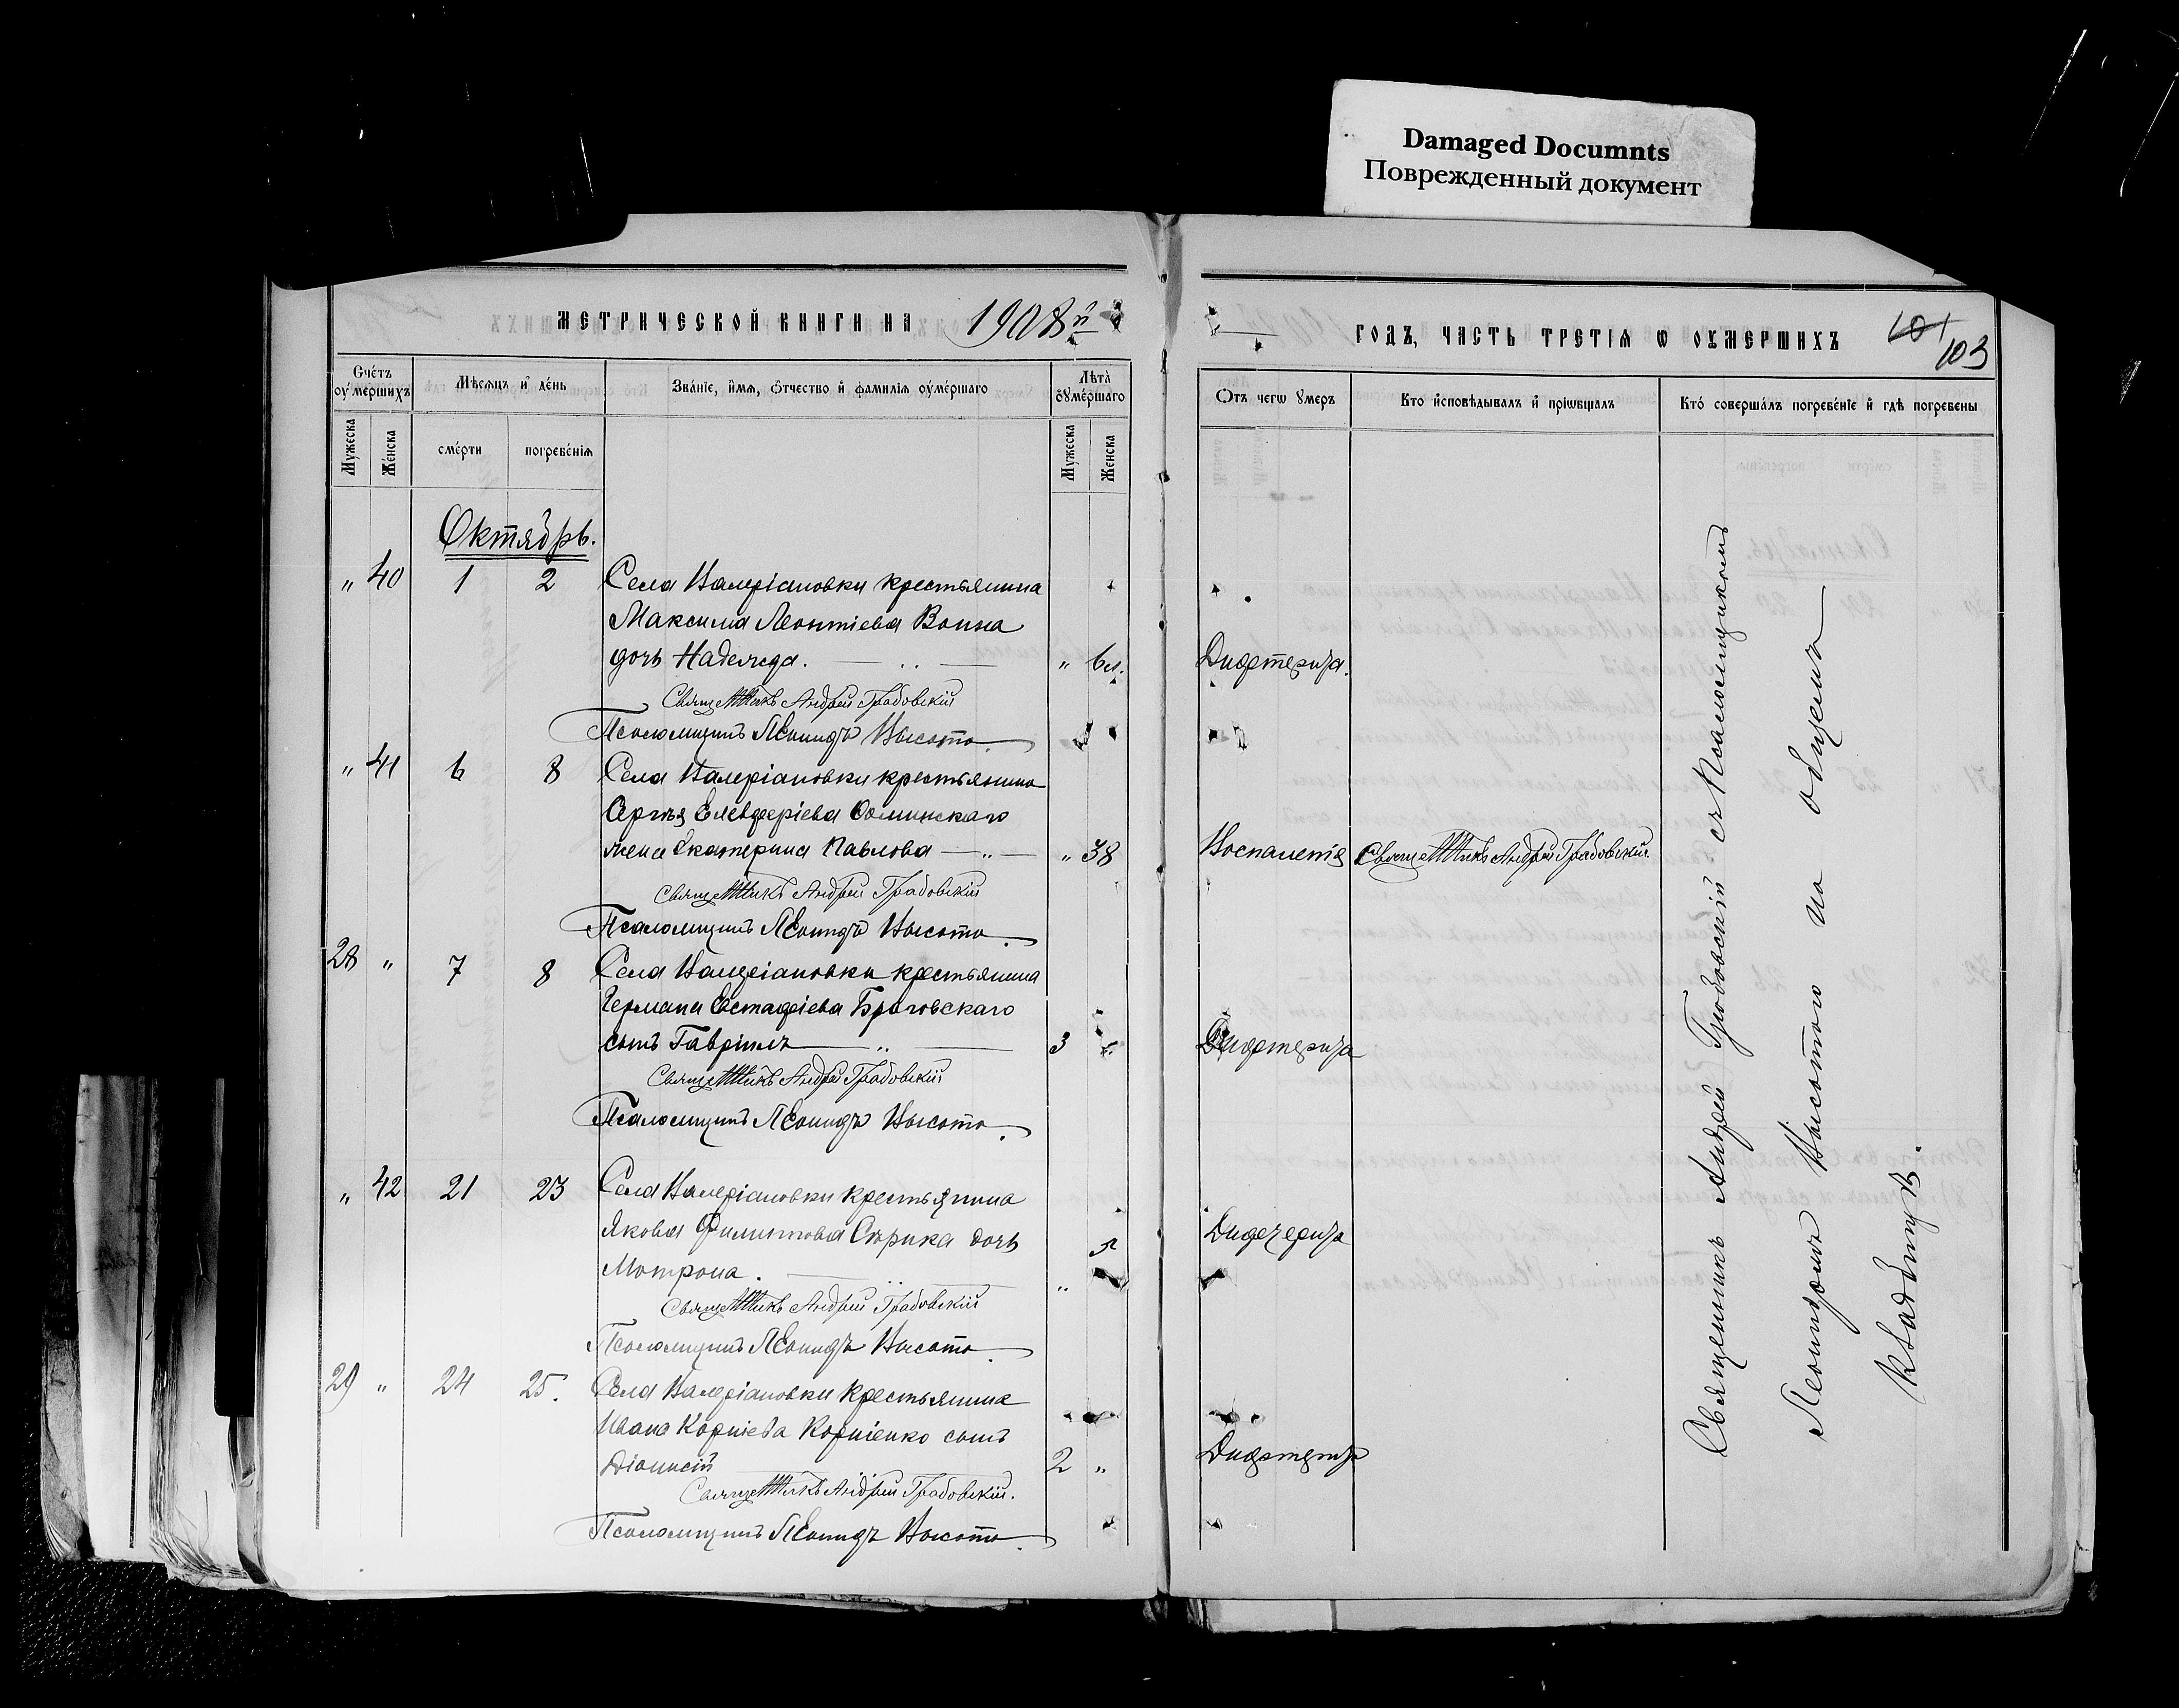 Damaged Documnts
Поврежденный документ
МЕТРИЧЕСКОЙ КНИГИ НА 1908й
ГОДЪ, ЧАСТЬ ТРЕТІЯ Ѡ ОУМЕРШИХЪ
101
103
Счетъ оумершихъ
Мѣсяцъ и день
Званіе, имя, отчество и фамилія оумершаго
Лѣта оумершаго
Отъ чегѡ умеръ
Кто исповѣдывалъ и пріѡбщалъ
Кто совершалъ погребеніе и гдѣ погребены
Мужеска
Женска
смерти
погребенія
Мужеска
Женска
Октябрь.
" 40 1 2 Села Валеріановки крестьянина
Максима Леонтіева Вовка
дочь Надежда. " 6 м. Дифтерита.
Священникъ Андрей Грабовскій
Псаломщикъ Леонидъ Высота.
" 41 6 8 Села Валеріановки крестьянина
Сергѣя Елевферіева
жена Екатерина Павлова " 38 Воспаленія Священникъ Андрей Грабовскій.
Священникъ Андрей Грабовскій
Псаломщикъ Леонидъ Высота.
28 " 7 8 Села Валеріановки крестьянина
Германа Евстафіева
сынъ Гавріилъ 3 Дифтерита
Священникъ Андрей Грабовскій
Псаломщикъ Леонидъ Высота.
" 42 21 23 Села Валеріановки крестьянина
Якова Филиппова Сѣрика дочь Дифтерита
Мотрона. "
Священникъ Андрей Грабовскій
Псаломщикъ Леонидъ Высота.
29 " 24 25. Села Валеріановки крестьянина
Ивана Корніева Корніенко сынъ
Діонисій 2 " Дифтерита
Священникъ Андрей Грабовскій.
Псаломщикъ Леонидъ Высота.
Священникъ Андрей Грабовскій съ Псаломщикомъ
Леонидомъ Высотою на общемъ
кладбищѣ.